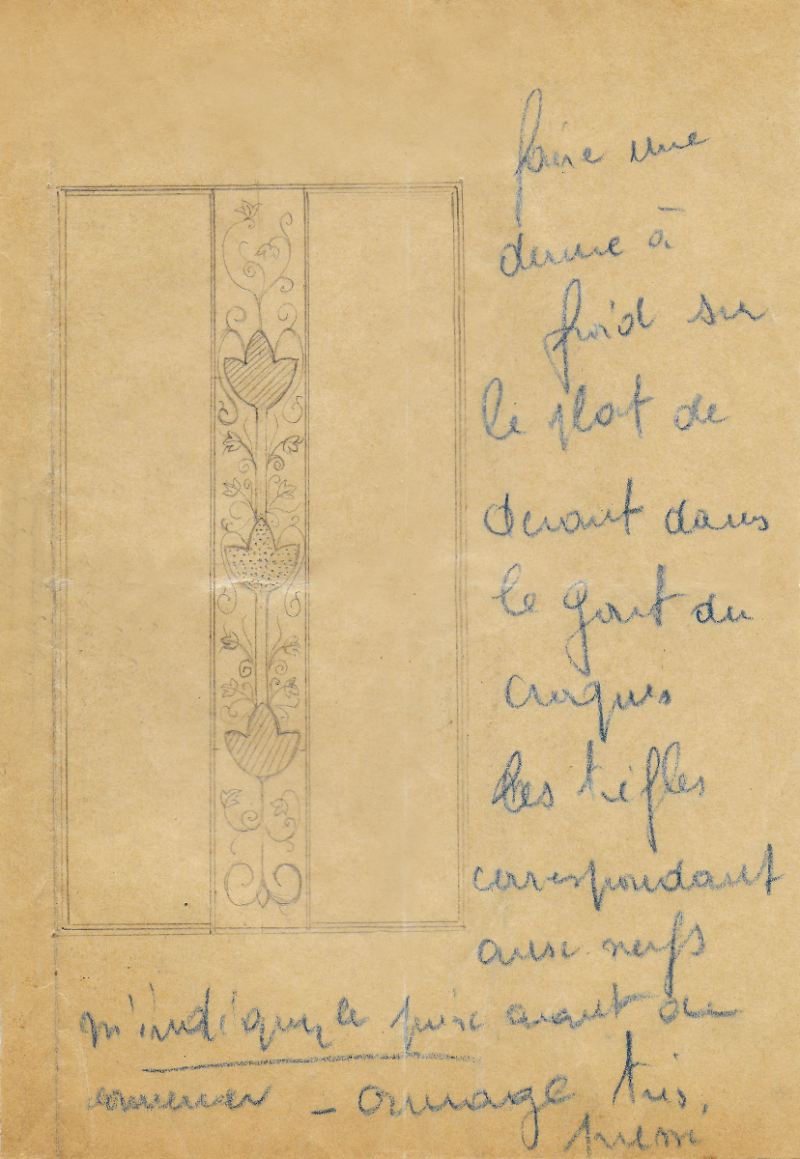 faire une
dorure à
froid sur
le plat de
devant dans
le gout du
croquis
les trèfles
correspondant
aux nerfs
m'indiquez le prix avant de
commencer - ouvrage très
pressé